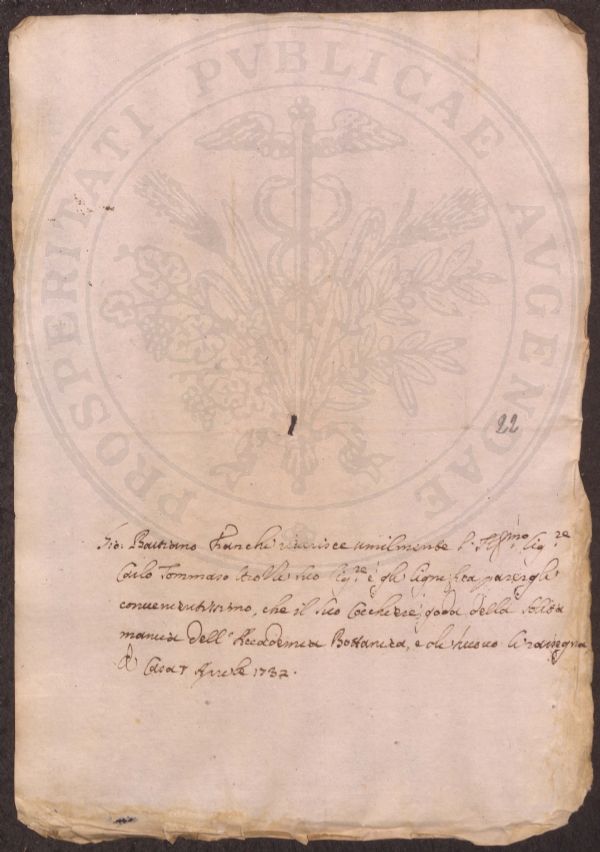 PROSPERITATI PVBLICAE AVGENDAE
22
Gio. Batista Franchi riverisce umilmente l'Ill.mo Sig.re
Carlo Tommaso Strozzi suo Sig.re e gli significa parergli
convenientissimo, che il suo Cocchiere goda della solita
mancia dell'Accademia Bottanica, e di nuovo si rassegna
Di Casa 7 Aprile 1732.